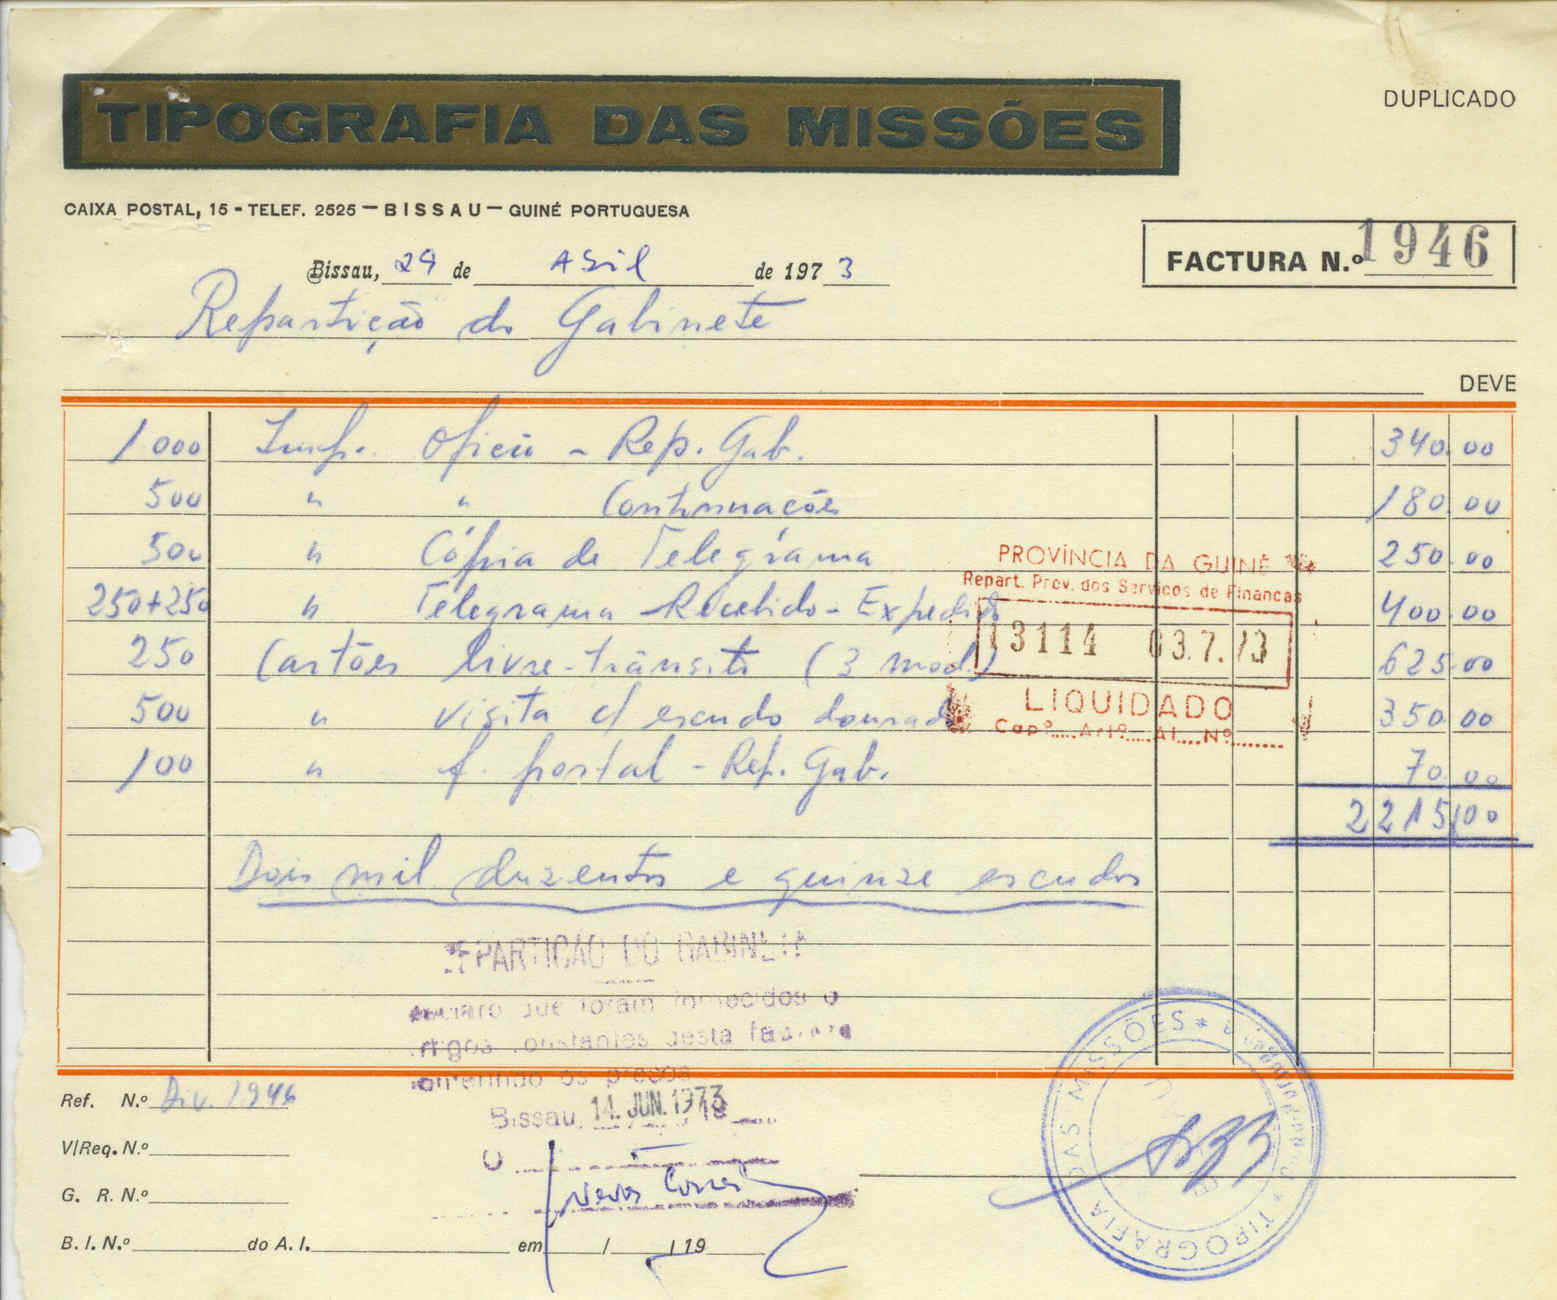 TIPOGRAFIA DAS MISSÕES
DUPLICADO
CAIXA POSTAL, 15 - TELEF. 2525 — BISSAU — GUINÉ PORTUGUESA
FACTURA N.º 1946
Bissau, 29 de Abril de 1973
Repartição do Gabinete
DEVE
1.000 Imp. Ofício - Rep. Gab. 340.00
500 " " Continuações 180.00
500 " Cópia de Telegrama 250.00
250+250 " Telegrama Recebido - Expedido 400.00
250 Cartões livre-trânsito (3 mod.) 625.00
500 " visita c/ escudo dourado 350.00
100 " f. postal - Rep. Gab. 70.00
2215,00
PROVÍNCIA DA GUINÉ
Repart. Prov. dos Serviços de Finanças
13114 03.7.73
LIQUIDADO
Capº.... Artº.... Al.... Nº.......
Dois mil duzentos e quinze escudos
REPARTIÇÃO DO GABINETE
que foram fornecidos o
artigos constantes desta factura
os preços
Bissau, 14. JUN. 1973 19
O
Neves
Ref. N.º Div. 1946
V/Req. N.º
G. R. N.º
B. I. N.º do A. I. em / / 19
TIPOGRAFIA DAS MISSÕES *